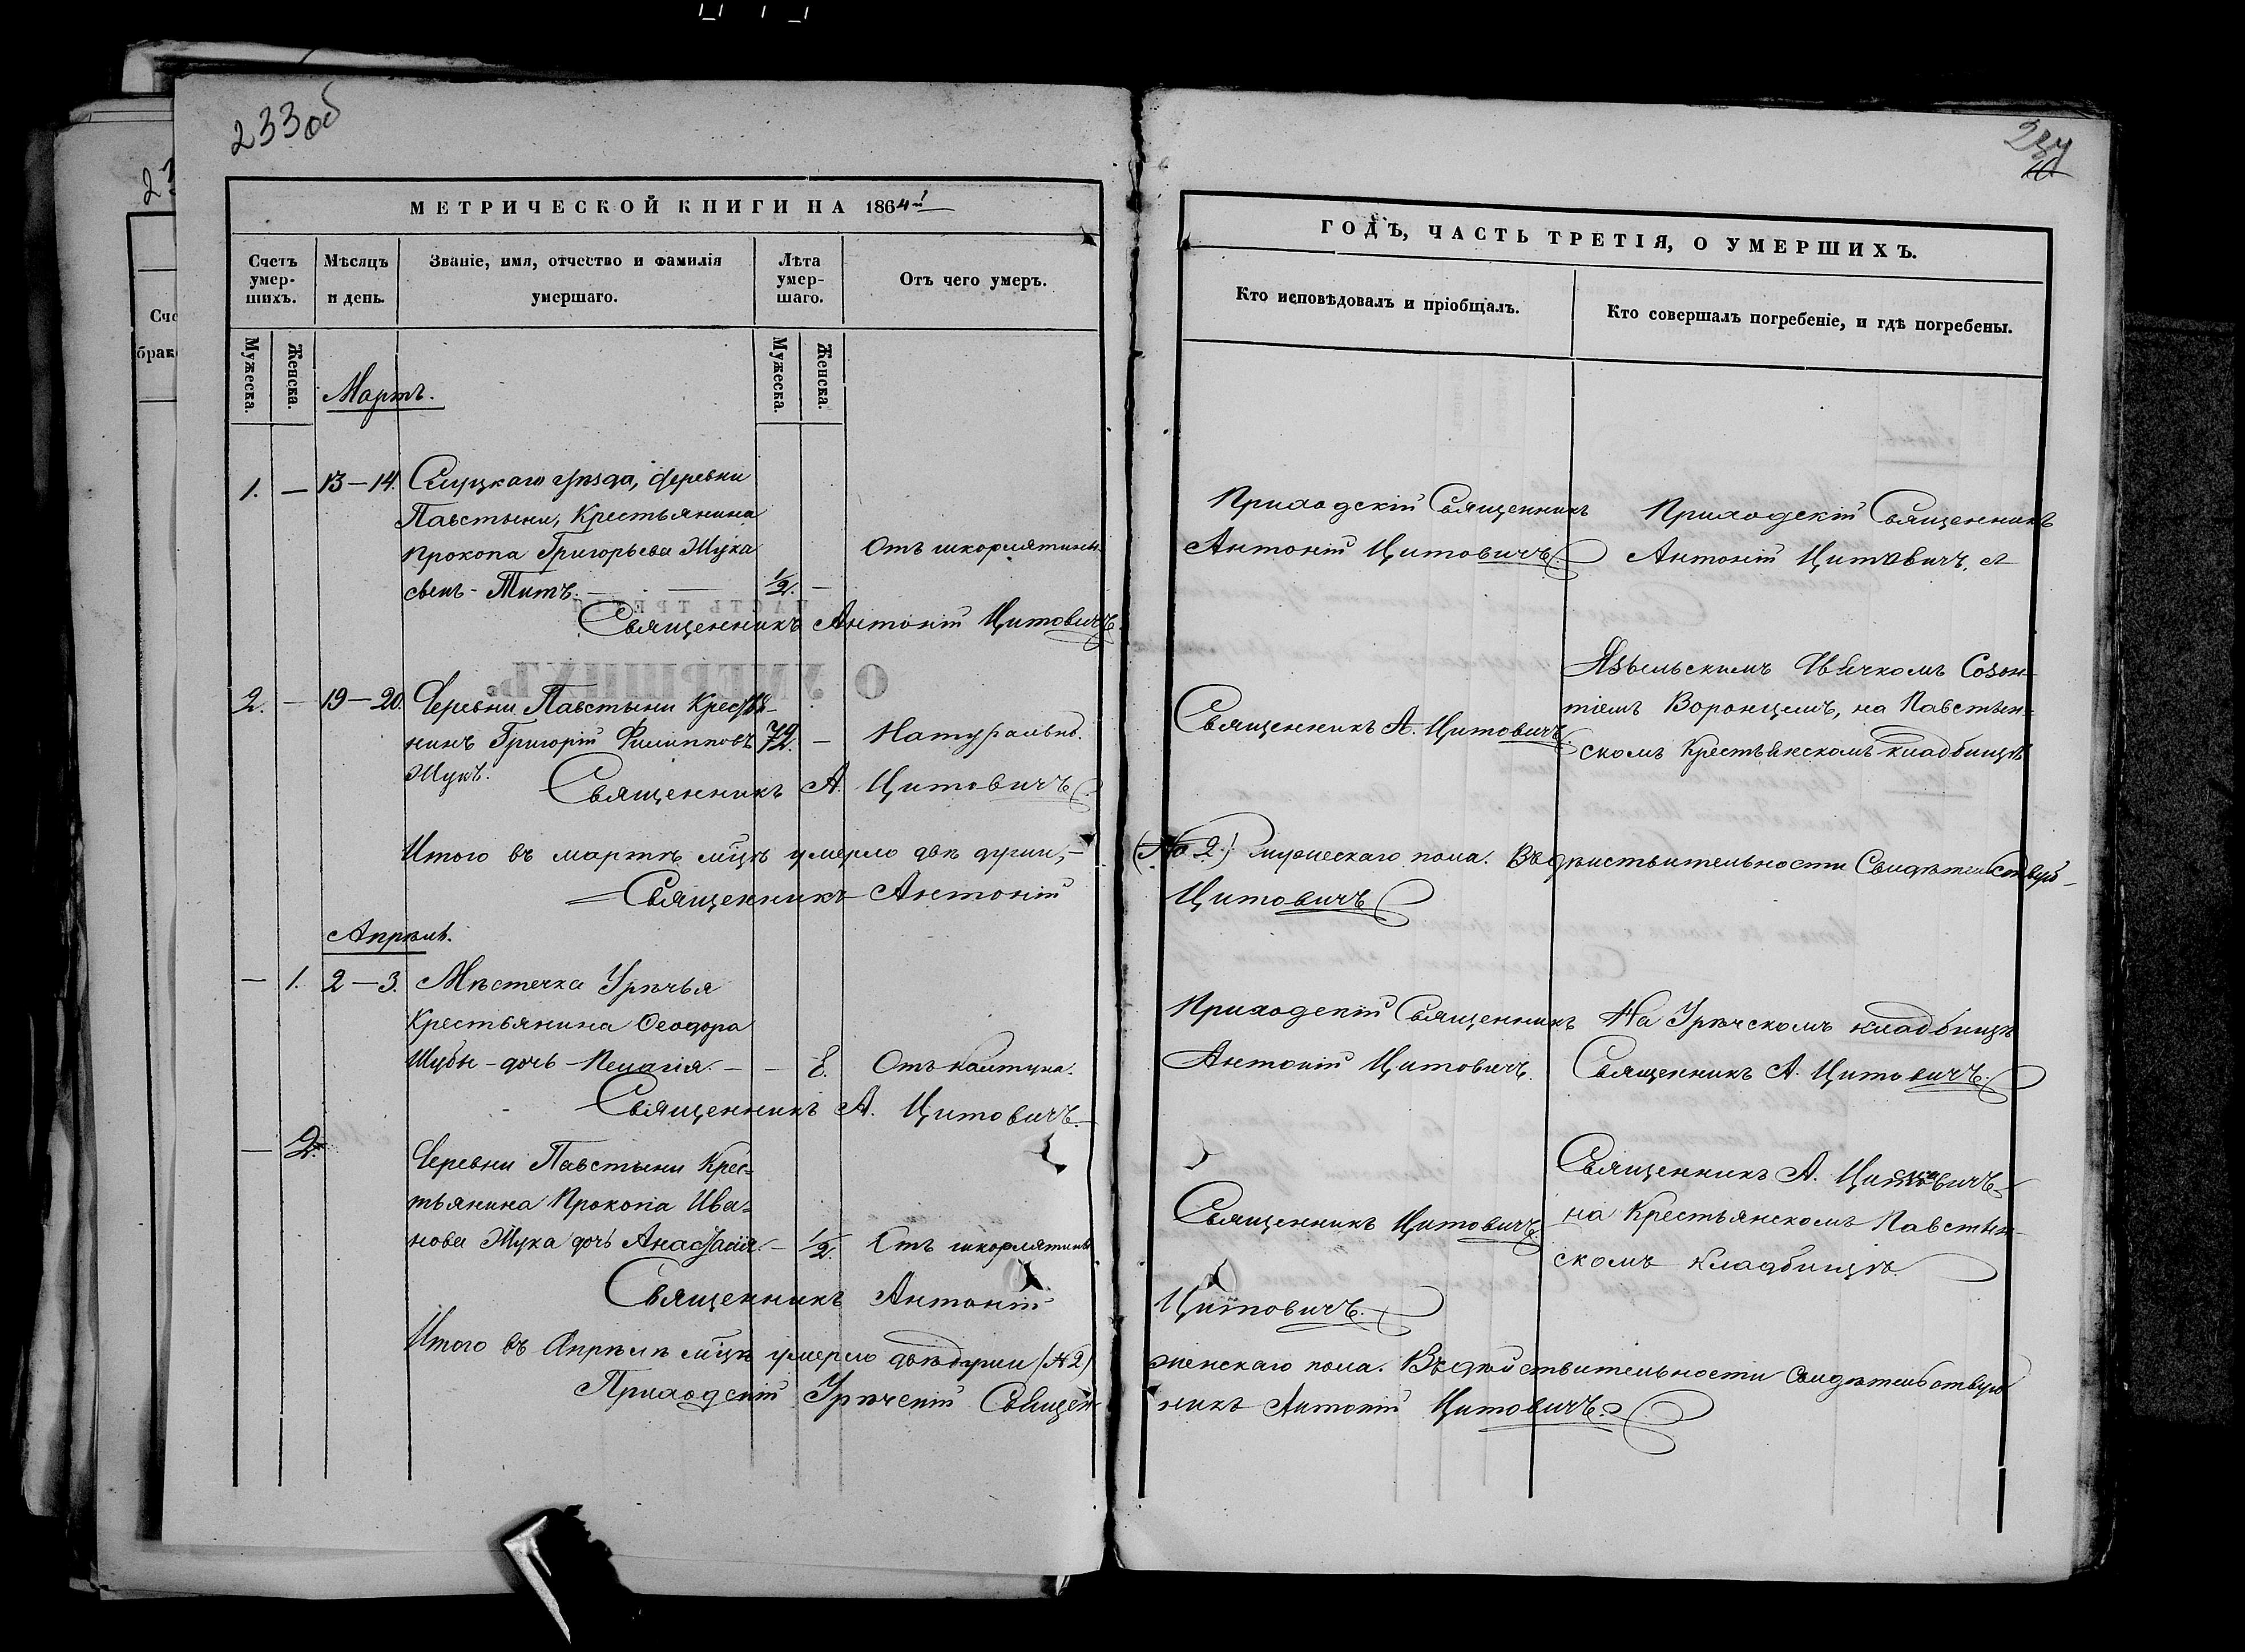 233 об
234
МЕТРИЧЕСКОЙ КНИГИ НА 1864й
Счетъ умер-
шихъ.
Мѣсяцъ
и день.
Званіе, имя, отчество и фамилія
умершаго.
Лѣта
умер-
шаго.
Отъ чего умеръ.
Мужеска.
Женска.
Мужеска.
Женска.
Мартъ.
1. — 13–14. Слуцкаго уѣзда, деревни
Павстыни, Крестьянина
Прокопа Григорьева Жука
сынъ - Титъ. — 1/2. — Отъ шкорлятины.
Священникъ Антоній Цитовичъ.
2. — 19–20. Деревни Павстыни Крестья-
нинъ Григорій Филипповъ 72. — Натурально.
Жукъ.
Священникъ А. Цитовичъ.
Итого въ мартѣ мцѣ умерло двѣ души,
Священникъ Антоній
Апрѣль.
— 1. 2–3. Мѣстечка Урѣчья
Крестьянина Ѳеодора
Шубы - дочь - Пелагія. — — 8. Отъ калтуна.
Священникъ А. Цитовичъ.
— 2. Деревни Павстыни Крес-
тьянина Прокопа Ива-
нова Жука дочь Анастасія. — 1/2. Отъ шкорлятины
Священникъ Антоній
Итого въ Апрѣлѣ мцѣ умерло двѣ души (№ 2)
Приходскій Урѣчскій Священ-
ГОДЪ, ЧАСТЬ ТРЕТІЯ, О УМЕРШИХЪ.
Кто исповѣдовалъ и пріобщалъ.
Кто совершалъ погребеніе, и гдѣ погребены.
Приходскій Священникъ
Антоній Цитовичъ.
Приходскій Священникъ
Антоній Цитовичъ.
Священникъ А. Цитовичъ.
Язвельскимъ Дьячкомъ Созон-
тіемъ Воронцемъ, на Павстын-
скомъ Крестьянскомъ кладбищѣ
(№ 2) мужескаго пола. Въ дѣйствительности Свидѣтельствую
Цитовичъ
Приходскій Священникъ
Антоній Цитовичъ.
На Урѣчскомъ кладбищѣ
Священникъ А. Цитовичъ.
Священникъ Цитовичъ.
Священникъ А. Цитовичъ
на Крестьянскомъ Павстын-
скомъ кладбищѣ.
Цитовичъ.
женскаго пола. Въ дѣйствительности Свидѣтельствую
никъ Антоній Цитовичъ.